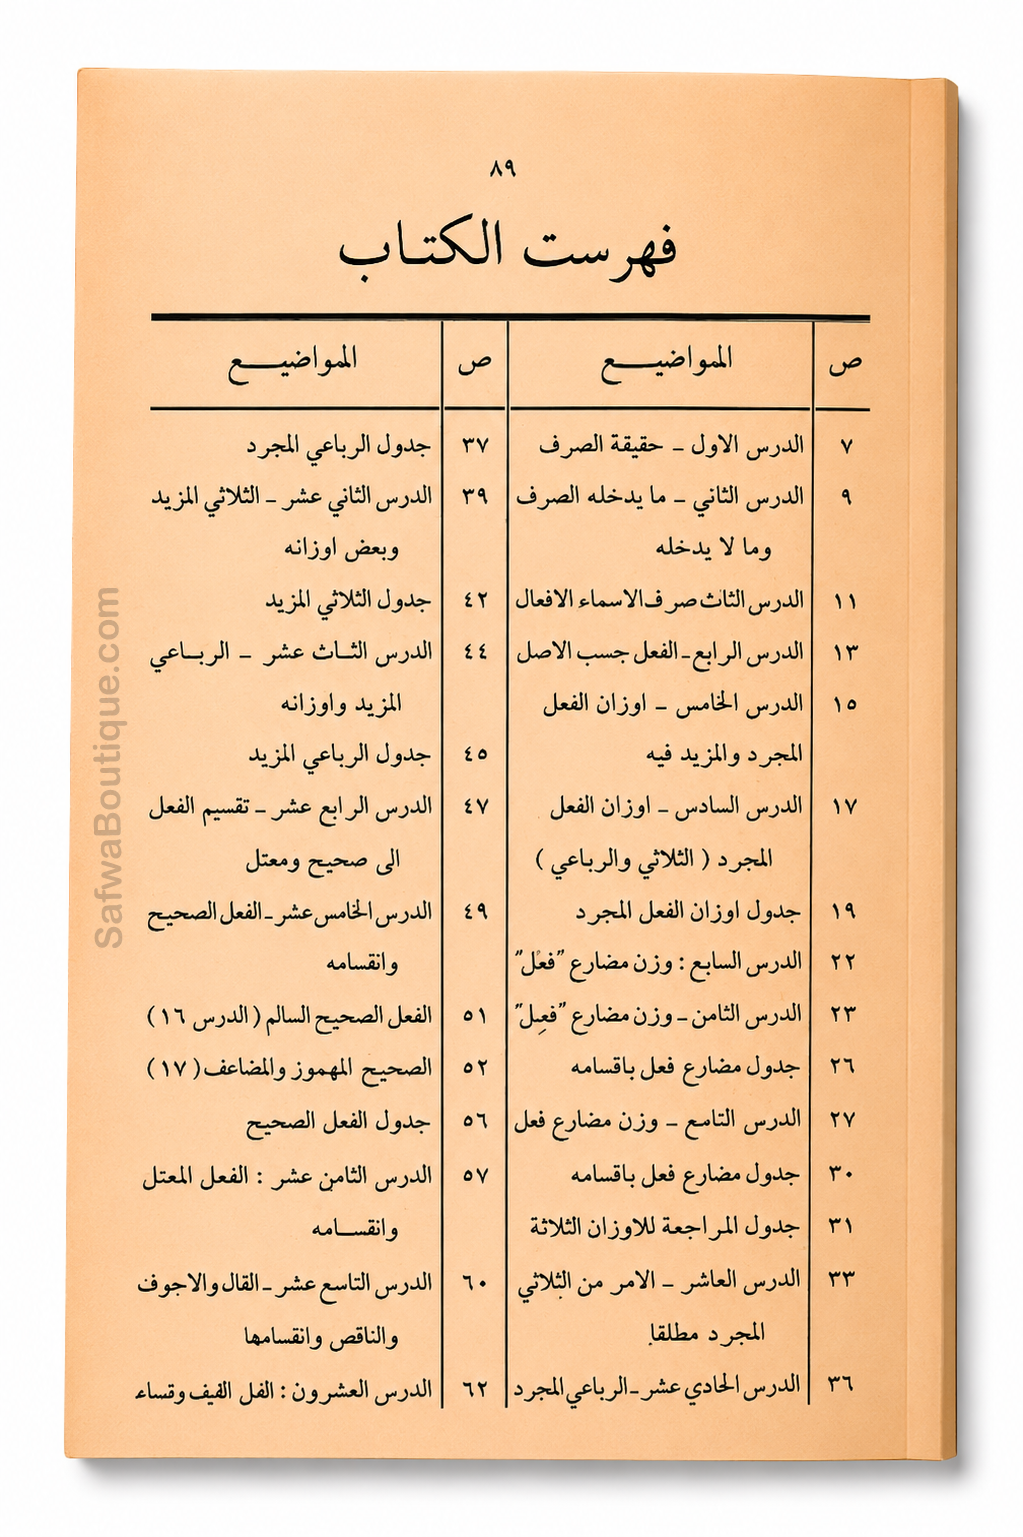 ٨٩
فهرست الكتاب
ص
المواضيع
ص
المواضيع
٧ الدرس الاول – حقيقة الصرف
٩ الدرس الثاني – ما يدخله الصرف
وما لا يدخله
١١ الدرس الثاث صرف الاسماء الافعال
١٣ الدرس الرابع – الفعل جسب الاصل
١٥ الدرس الخامس – اوزان الفعل
المجرد والمزيد فيه
١٧ الدرس السادس – اوزان الفعل
المجرد ( الثلاثي والرباعي )
١٩ جدول اوزان الفعل المجرد
٢٢ الدرس السابع : وزن مضارع "فعُل"
٢٣ الدرس الثامن – وزن مضارع "فعِل"
٢٦ جدول مضارع فعل باقسامه
٢٧ الدرس التاسع – وزن مضارع فعل
٣٠ جدول مضارع فعل باقسامه
٣١ جدول المراجعة للاوزان الثلاثة
٣٣ الدرس العاشر – الامر من الثلاثي
المجرد مطلقا
٣٦ الدرس الحادي عشر – الرباعي المجرد
٣٧ جدول الرباعي المجرد
٣٩ الدرس الثاني عشر – الثلاثي المزيد
وبعض اوزانه
٤٢ جدول الثلاثي المزيد
٤٤ الدرس الثاث عشر – الرباعي
المزيد واوزانه
٤٥ جدول الرباعي المزيد
٤٧ الدرس الرابع عشر – تقسيم الفعل
الى صحيح ومعتل
٤٩ الدرس الخامس عشر – الفعل الصحيح
وانقسامه
٥١ الفعل الصحيح السالم ( الدرس ١٦ )
٥٢ الصحيح المهموز والمضاعف ( ١٧ )
٥٦ جدول الفعل الصحيح
٥٧ الدرس الثامن عشر : الفعل المعتل
وانقسامه
٦٠ الدرس التاسع عشر – القال والاجوف
والناقص وانقسامها
٦٢ الدرس العشرون : الفل الفيف وقساء
SafwaBoutique.com